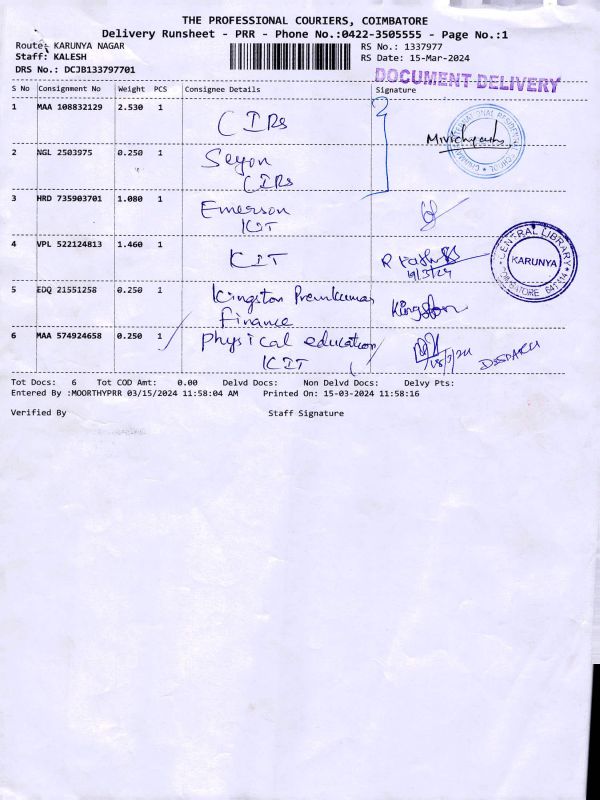 THE PROFESSIONAL COURIERS, COIMBATORE
Delivery Runsheet - PRR - Phone No.:0422-3505555 - Page No.:1
Route: KARUNYA NAGAR
RS No.: 1337977
Staff: KALESH
RS Date: 15-Mar-2024
DRS No.: DCJB133797701
DOCUMENT DELIVERY
S No Consignment No Weight PCS Consignee Details Signature
1 MAA 108832129 2.530 1 CIRs
2 NGL 2503975 0.250 1 Seyon
CIRs
3 HRD 735903701 1.080 1 Emerson
KIT
4 VPL 522124813 1.460 1 KIT
CENTRAL LIBRARY
KARUNYA
COIMBATORE 641 114
5 EDQ 21551258 0.250 1 Kingston Premkumar
Finance
Kingston
6 MAA 574924658 0.250 1 Physical education
KIT
Tot Docs: 6 Tot COD Amt: 0.00 Delvd Docs: Non Delvd Docs: Delvy Pts:
Entered By :MOORTHYPRR 03/15/2024 11:58:04 AM Printed On: 15-03-2024 11:58:16
Verified By Staff Signature